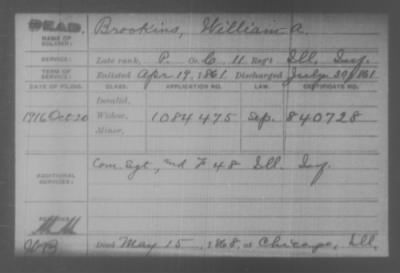 DEAD.
NAME OF SOLDIER: Brookins, William A.
SERVICE: Late rank, P. Co. C. 11 Reg't Ill. Inf.
TERM OF SERVICE: Enlisted Apr. 19, 1861 Discharged July 30, 1861
DATE OF FILING. CLASS. APPLICATION NO. LAW. CERTIFICATE NO.
Invalid,
1916 Oct 20 Widow, 1084475 Sep. 840728
Minor,
ADDITIONAL SERVICES: Com. Sgt, F 48 Ill. Inf.
Died May 15, 1868, at Chicago, Ill.